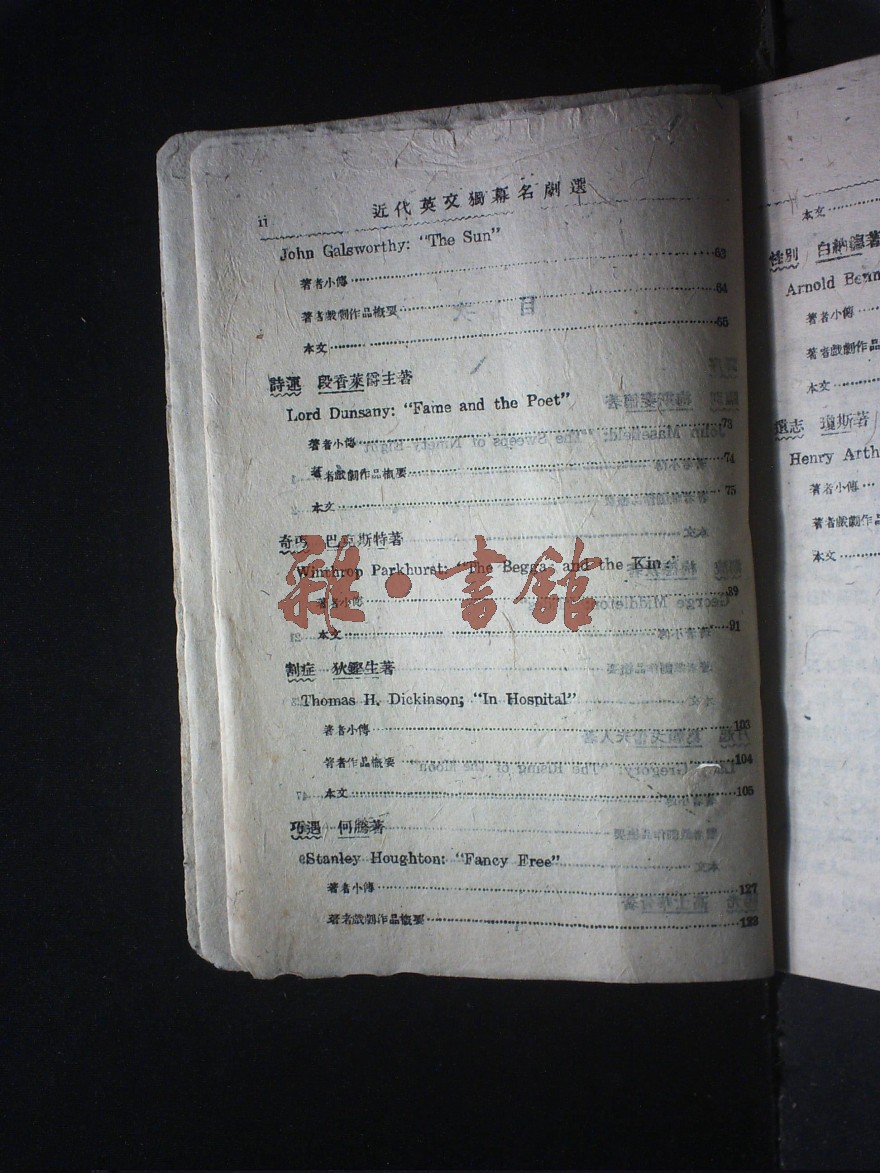 ii 近代英文獨幕名劇選
John Galsworthy: "The Sun"
著者小傳 63
著者戲劇作品概要 64
本文 65
詩運 段香萊爵主著
Lord Dunsany: "Fame and the Poet"
著者小傳 73
著者戲劇作品概要 74
本文 75
奇丐 巴克斯特著
Winthrop Parkhurst: "The Beggar and the King"
著者小傳 89
本文 91
割症 狄鏗生著
Thomas H. Dickinson; "In Hospital"
著者小傳 103
著者作品概要 104
本文 105
巧遇 何騰著
Stanley Houghton: "Fancy Free"
著者小傳 127
著者戲劇作品概要 128
本文
性別 白納德著
Arnold Benn
著者小傳
著者戲劇作品
本文
遺志 瓊斯著
Henry Arth
著者小傳
著者戲劇作品
本文
雜·書館